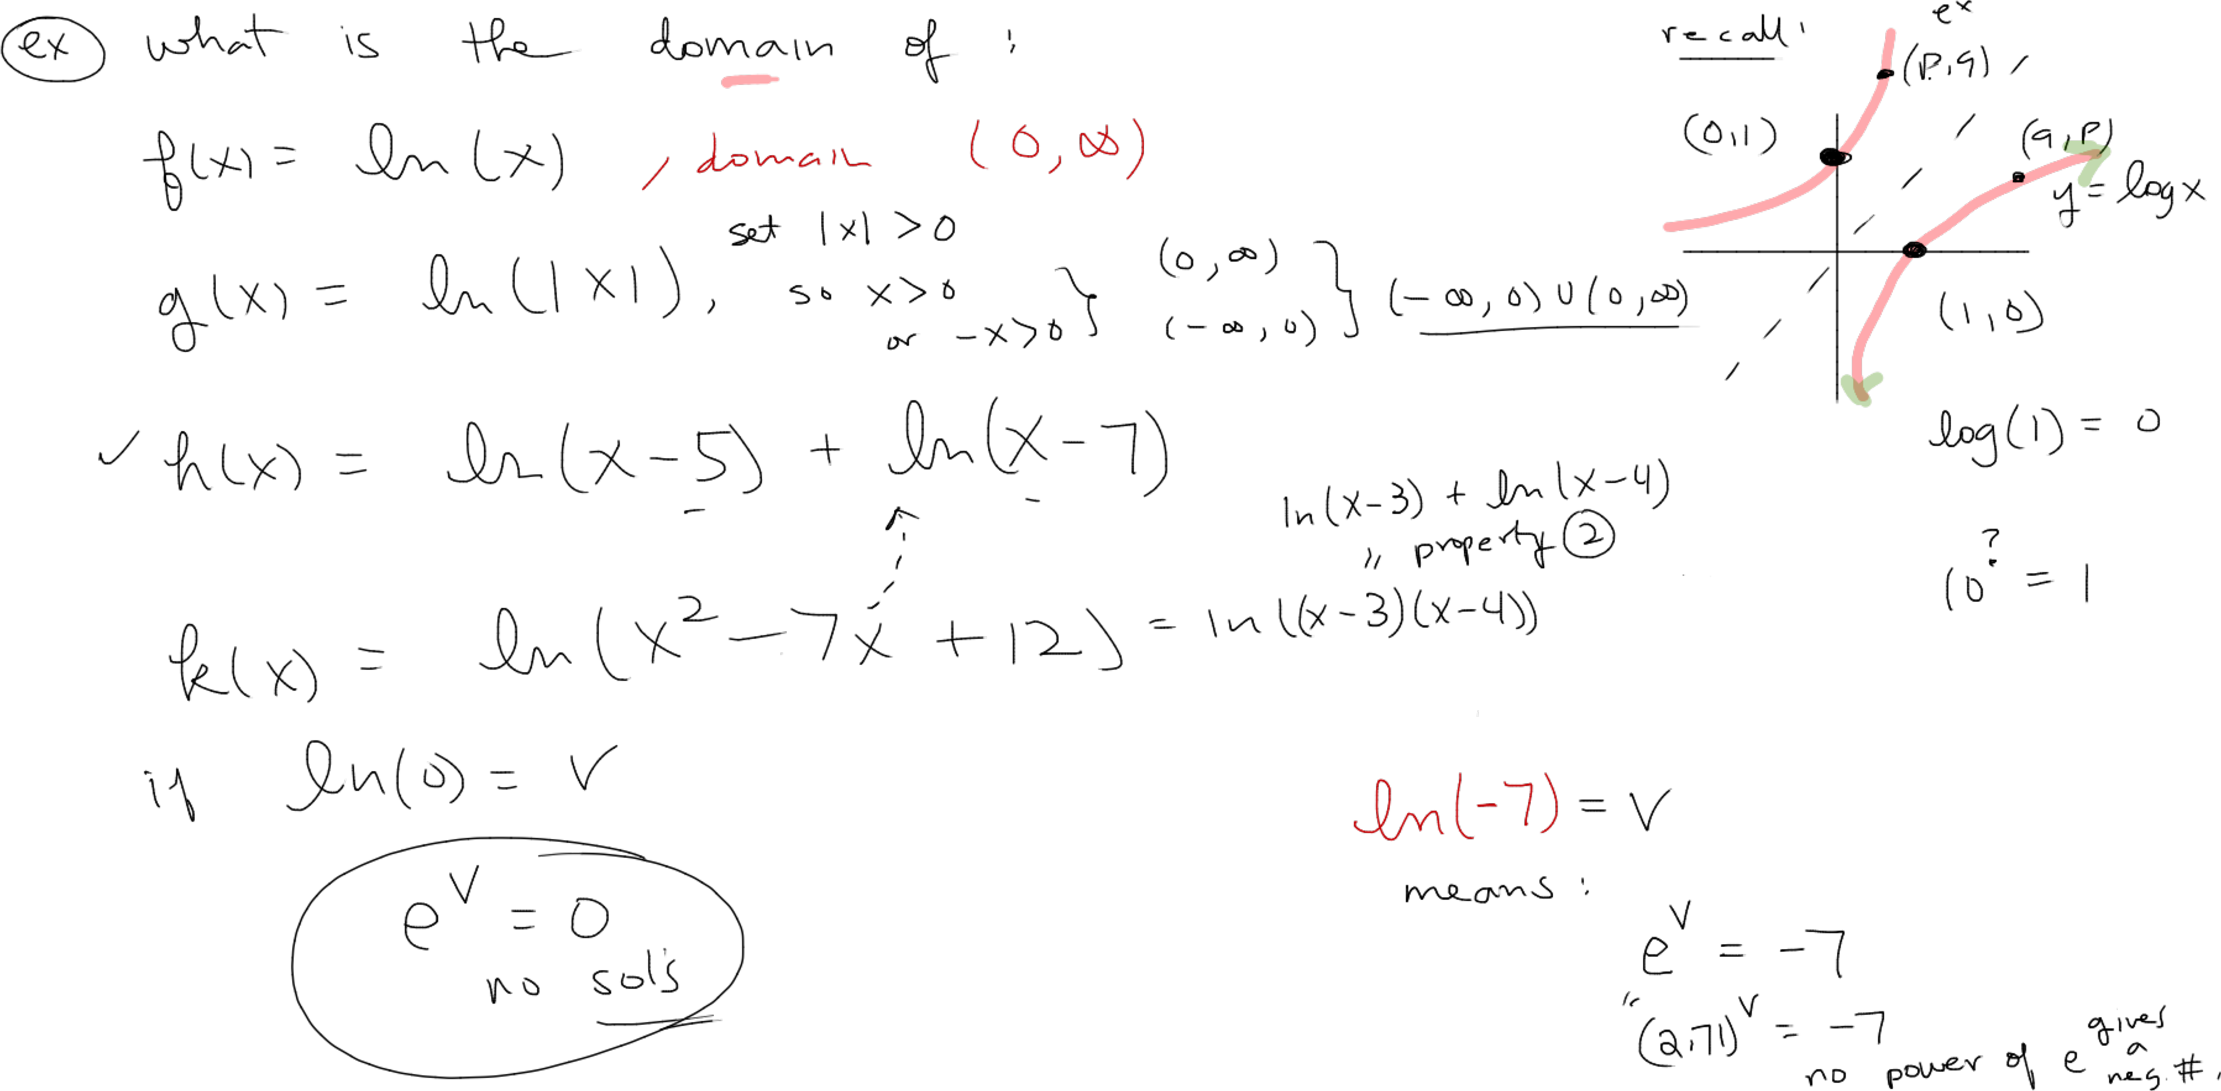 ex what is the domain of :
f(x) = ln(x) , domain (0, ∞)
set |x| > 0
g(x) = ln(|x|), so x>0 or -x>0 } (0, ∞) (-∞, 0) } (-∞, 0) ∪ (0, ∞)
✓ h(x) = ln(x-5) + ln(x-7)
ln(x-3) + ln(x-4)
" property ②
k(x) = ln(x² - 7x + 12) = ln((x-3)(x-4))
if ln(0) = v
e^v = 0
no sol's
recall:
e^x
(p,q)
(0,1)
(q,p)
y = log x
(1,0)
log(1) = 0
10^? = 1
ln(-7) = v
means :
e^v = -7
"
(2.71)^v = -7
no power of e gives a neg. #.